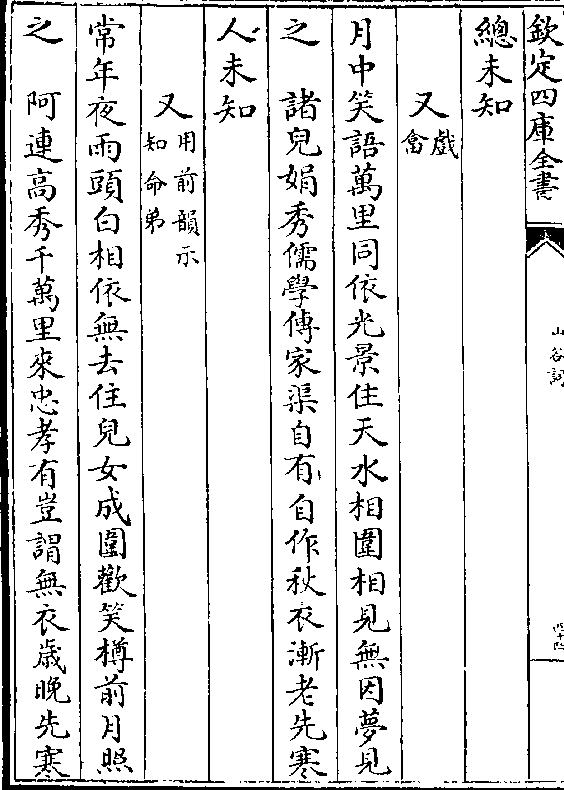 欽定四庫全書
山谷詞
四十四
總未知
又戲
畣
月中笑語萬里同依光景住天水相圍相見無因夢見
之　諸兒娟秀儒學傳家渠自有自作秋衣漸老先寒
人未知
又用前韻示
知命弟
常年夜雨頭白相依無去住兒女成圍歡笑樽前月照
之　阿連高秀千萬里來忠孝有豈謂無衣歳晚先寒